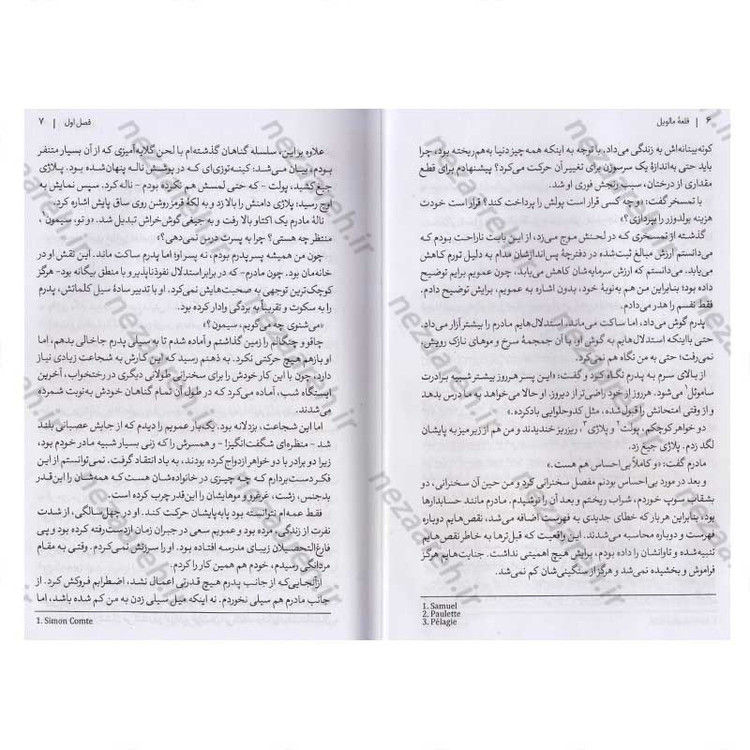 ۶ | قلعهٔ مالویل
کوته‌بینانه‌اش به زندگی می‌داد. با توجه به اینکه همه چیز دنیا به‌هم‌ریخته بود، چرا
باید حتی به‌اندازهٔ یک سرسوزن برای تغییر آن حرکت می‌کرد؟ پیشنهادم برای قطع
مقداری از درختان، سبب رنجش فوری او شد.
با تمسخر گفت: «و چه کسی قرار است پولش را پرداخت کند؟ قرار است خودت
هزینه بولدوزر را بپردازی؟»
گذشته از تمسخری که در لحنش موج می‌زد، از این بابت ناراحت بودم که
می‌دانستم ارزش مبالغ ثبت‌شده در دفترچهٔ پس‌اندازشان مدام به دلیل تورم کاهش
می‌یابد. می‌دانستم که ارزش سرمایه‌شان کاهش می‌یابد، چون عمویم برایم توضیح
داده بود؛ بنابراین من هم به‌نوبهٔ خود، بدون اشاره به عمویم، برایش توضیح دادم،
فقط نفسم را هدر می‌دادم.
پدرم گوش می‌داد، اما ساکت می‌ماند. استدلال‌هایم مادرم را بیشتر آزار می‌داد.
حتی با اینکه استدلال‌هایم به گوش او، با آن جمجمهٔ سرخ و موهای نازک رویش،
نمی‌رفت؛ حتی به من نگاه هم نمی‌کرد.
از بالای سرم به پدرم نگاه کرد و گفت: «این پسر هر روز بیشتر شبیه برادرت
ساموئل۱ می‌شود. هرروز از خود راضی‌تر از دیروز. او حالا می‌خواهد به ما درس بدهد
و از وقتی امتحانش را قبول شده، مثل کدوحلوایی بادکرده.»
دو خواهر کوچکم، پولت۲ و پلاژی۳، ریزریز خندیدند و من هم از زیر میز به پایشان
لگد زدم. پلاژی جیغ زد.
مادرم گفت: «و کاملاً بی‌احساس هم هست.»
و بعد در مورد بی‌احساس بودنم مفصل سخنرانی کرد و من حین آن سخنرانی، دو
بشقاب سوپ خوردم، شراب ریختم و بعد آن را نوشیدم. مادرم مانند حسابدارها
بود، بنابراین هر بار که خطای جدیدی به فهرست اضافه می‌شد، نقص‌هایم دوباره
فهرست و دوباره محاسبه می‌شدند. این واقعیت که قبل‌ترها به خاطر نقص‌هایم
تنبیه‌شده و تاوانشان را داده بودم، برایش هیچ اهمیتی نداشت. جنایت‌هایم هرگز
فراموش و بخشیده نمی‌شد و هرگز از سنگینی‌شان کم نمی‌شد.
1. Samuel
2. Paulette
3. Pélagie
فصل اول | ۷
علاوه بر این، سلسله گناهان گذشته‌ام با لحن گلایه‌آمیزی که از آن بسیار متنفر
بودم، بیان می‌شد؛ کینه‌توزی‌ای که در پوشش ناله پنهان‌شده بود. پلاژی
جیغ کشید، پولت - که حتی لمسش هم نکرده بودم - ناله کرد. سپس نمایش به
اوج رسید: پلاژی دامنش را بالا زد و به لکهٔ قرمز روشن روی ساق پایش اشاره کرد.
نالهٔ مادرم یک اکتاو بالا رفت و به جیغی گوش‌خراش تبدیل شد. «و تو، سیمون۱،
منتظر چه هستی؟ چرا به پسرت درس نمی‌دهی؟»
چون من همیشه پسر پدرم بودم، نه پسر او؛ اما پدرم ساکت ماند. این نقش او در
خانه‌مان بود. چون مادرم- که در برابر استدلال نفوذناپذیر و با منطق بیگانه بود- هرگز
کوچک‌ترین توجهی به صحبت‌هایش نمی‌کرد. او با تدبیر سادهٔ سیل کلماتش، پدرم
را به سکوت و تقریباً به بردگی وادار کرده بود.
«می‌شنوی چه می‌گویم، سیمون؟»
چاقو و چنگالم را زمین گذاشتم و آماده شدم تا به سیلی پدرم جاخالی بدهم، اما
او بازهم هیچ حرکتی نکرد. به ذهنم رسید که این کارش به شجاعت زیادی نیاز
دارد، چون با این کار خودش را برای سخنرانی طولانی دیگری در رختخواب، آخرین
ایستگاه شب، آماده می‌کرد که در طول آن تمام گناهان خودش به‌نوبت شمرده
می‌شدند.
اما این شجاعت، بزدلانه بود. یک‌بار عمویم را دیدم که از جایش عصبانی بلند
شد - منظره‌ای شگفت‌انگیز! - و همسرش را که زنی بسیار شبیه مادر خودم بود،
زیرا دو برادر با دو خواهر ازدواج کرده بودند، به باد انتقاد گرفت. نمی‌توانستم از این
فکر دست‌بردارم که چه چیزی در خانواده‌شان هست که همه‌شان را این‌قدر
بدجنس، زشت، غرغرو و موهایشان را این‌قدر چرب کرده است.
فقط عمه‌ام نتوانسته بود پابه‌پایشان حرکت کند. او در چهل‌سالگی، از شدت
نفرت از زندگی، مرده بود و عمویم سعی در جبران زمان ازدست‌رفته کرده بود و پی
فارغ‌التحصیلان زیبای مدرسه افتاده بود. او را سرزنش نمی‌کردم. وقتی به مقام
مردانگی رسیدم، خودم هم همین کار را کردم.
از آنجایی‌که از جانب پدرم هیچ قدرتی اعمال نشد، اضطرابم فروکش کرد. از
جانب مادرم هم سیلی نخوردم. نه اینکه میل سیلی زدن به من کم شده باشد، اما
1. Simon Comte
nezaareh.ir